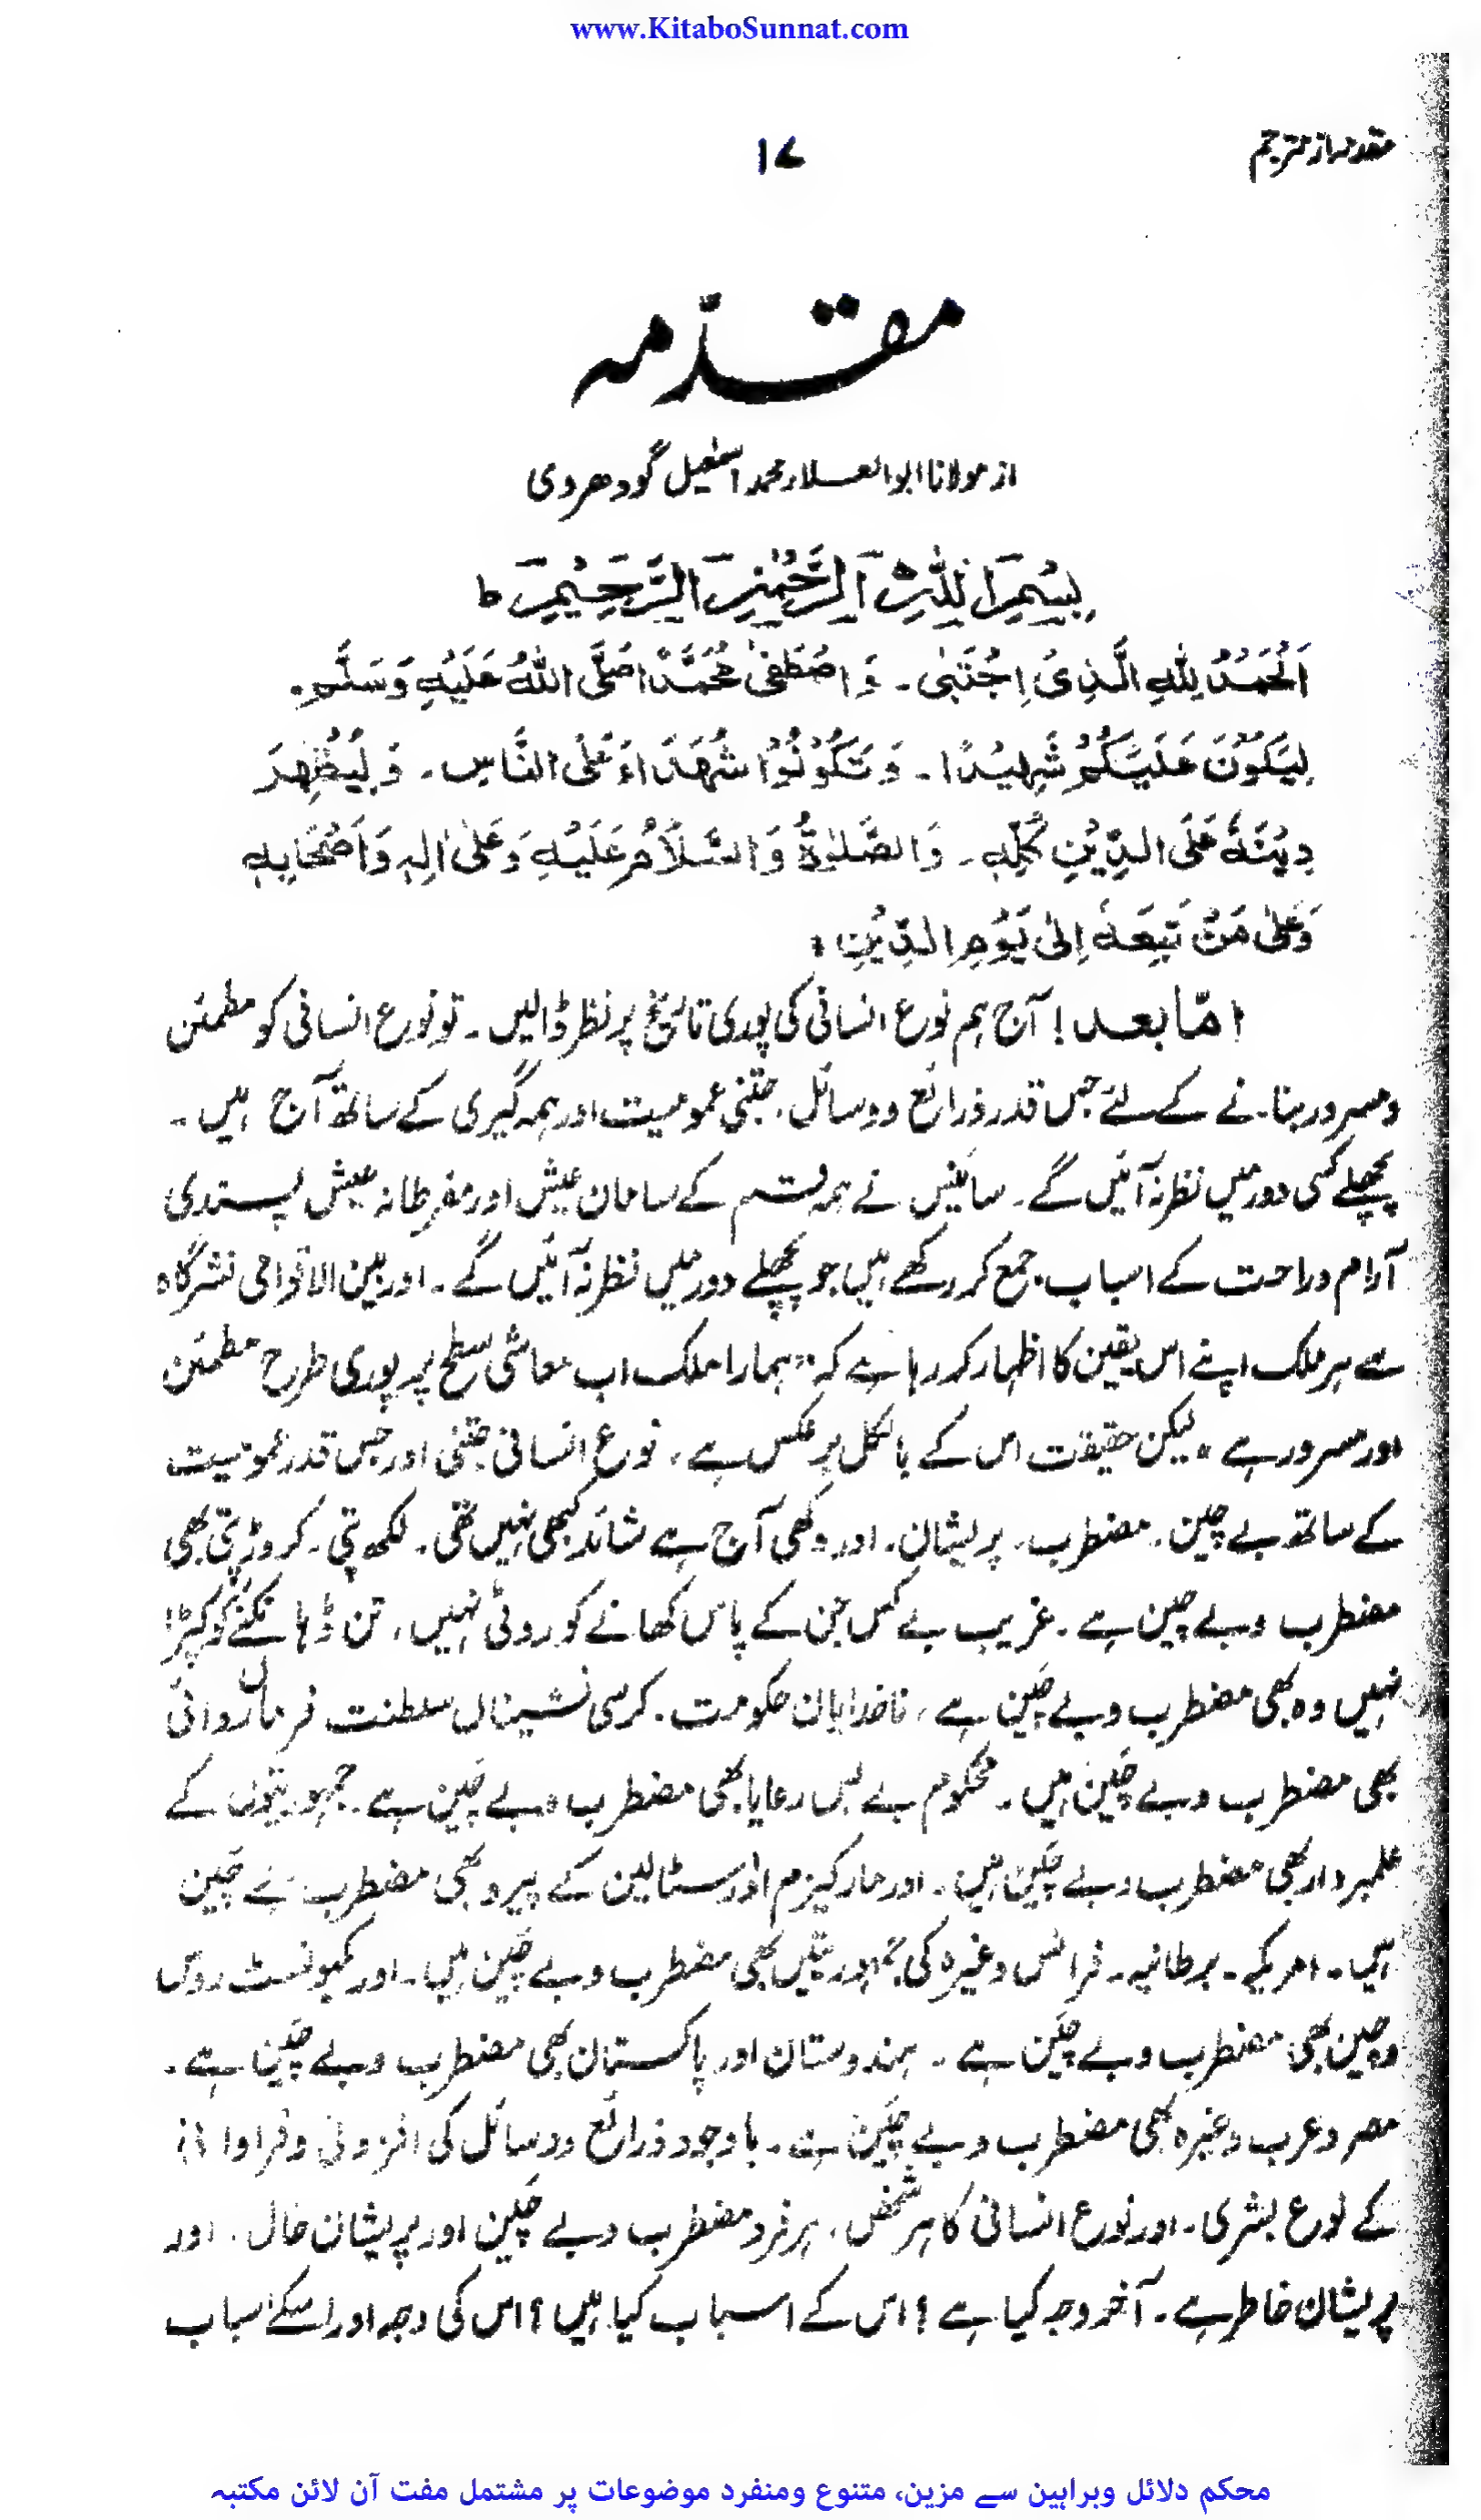 www.KitaboSunnat.com
مقدمہ از مترجم
۱۷
مقدّمہ
از مولانا ابو العلاء محمد اسمٰعیل گودھروی
بِسْمِ اللّٰهِ الرَّحْمٰنِ الرَّحِيْمِ ط
اَلْحَمْدُ لِلّٰهِ الَّذِىْ اِجْتَبٰى ۔ وَاصْطَفٰى مُحَمَّدًا صَلَّى اللّٰهُ عَلَيْهِ وَسَلَّمَ۔
لِيَكُوْنَ عَلَيْكُمْ شَهِيْدًا ۔ وَتَكُوْنُوْا شُهَدَاءَ عَلَى النَّاسِ ۔ وَلِيُظْهِرَ
دِيْنَهٗ عَلَى الدِّيْنِ كُلِّهٖ ۔ وَالصَّلٰوةُ وَالسَّلَامُ عَلَيْهِ وَعَلٰى اٰلِهٖ وَاَصْحَابِهٖ
وَعَلٰى مَنْ تَبِعَهٗ اِلٰى يَوْمِ الدِّيْنِ :
امّا بعد ! آج ہم نوع انسانی کی پوری تاریخ پر نظر ڈالیں ۔ تو نوع انسانی کو مطمئن
ومسرور بنانے کے لئے جس قدر ذرائع و وسائل، جتنی عمومیت اور ہمہ گیری کے ساتھ آج ہیں ۔
پچھلے کسی دور میں نظر نہ آئیں گے ۔ سائنس نے ہمہ قسم کے سامان عیش اور مفرطانہ عیش پسندی
آرام وراحت کے اسباب جمع کر رکھے ہیں جو پچھلے دور میں نظر نہ آئیں گے ۔ اور بین الاقوامی نشرگاہ
سے ہر ملک اپنے اس یقین کا اظہار کر رہا ہے کہ "ہمارا ملک اب معاشی سطح پر پوری طرح مطمئن
اور مسرور ہے" لیکن حقیقت اس کے بالکل برعکس ہے، نوع انسانی جتنی اور جس قدر عمومیت
کے ساتھ بے چین ۔ مضطرب ۔ پریشان ۔ اور دکھی آج ہے شائد کبھی نہیں تھی ۔ لکھ پتی ۔ کروڑ پتی بھی
مضطرب وبے چین ہے ۔ غریب بے کس جن کے پاس کھانے کو روٹی نہیں، تن ڈہانکنے کو کپڑا
نہیں وہ بھی مضطرب وبے چین ہے، ناخدایان حکومت ۔ کرسی نشینان سلطنت فرماں روائی
بھی مضطرب وبے چین ہیں ۔ محکوم بے بس رعایا بھی مضطرب وبے چین ہے ۔ جمہوریتوں کے
علمبردار بھی مضطرب وبے چین ہیں ۔ اور مارکیزم اور سٹالین کے پیرو بھی مضطرب بے چین
ہیں ۔ امریکہ ۔ برطانیہ ۔ فرانس وغیرہ کی جمہوریتیں بھی مضطرب وبے چین ہیں ۔ اور کمیونسٹ روس
وچین بھی مضطرب وبے چین ہے ۔ ہندوستان اور پاکستان بھی مضطرب وبے چین ہے ۔
مصر وعرب وغیرہ بھی مضطرب وبے چین ہے ۔ باوجود ذرائع ووسائل کی افزونی وفراوانی
کے نوع بشری ۔ اور نوع انسانی کا ہر شخص، ہر فرد مضطرب وبے چین اور پریشان حال، اور
پریشان خاطر ہے ۔ آخر وجہ کیا ہے ؟ اس کے اسباب کیا ہیں ؟ اس کی وجہ اور اسکے اسباب
محکم دلائل وبراہین سے مزین، متنوع ومنفرد موضوعات پر مشتمل مفت آن لائن مکتبہ